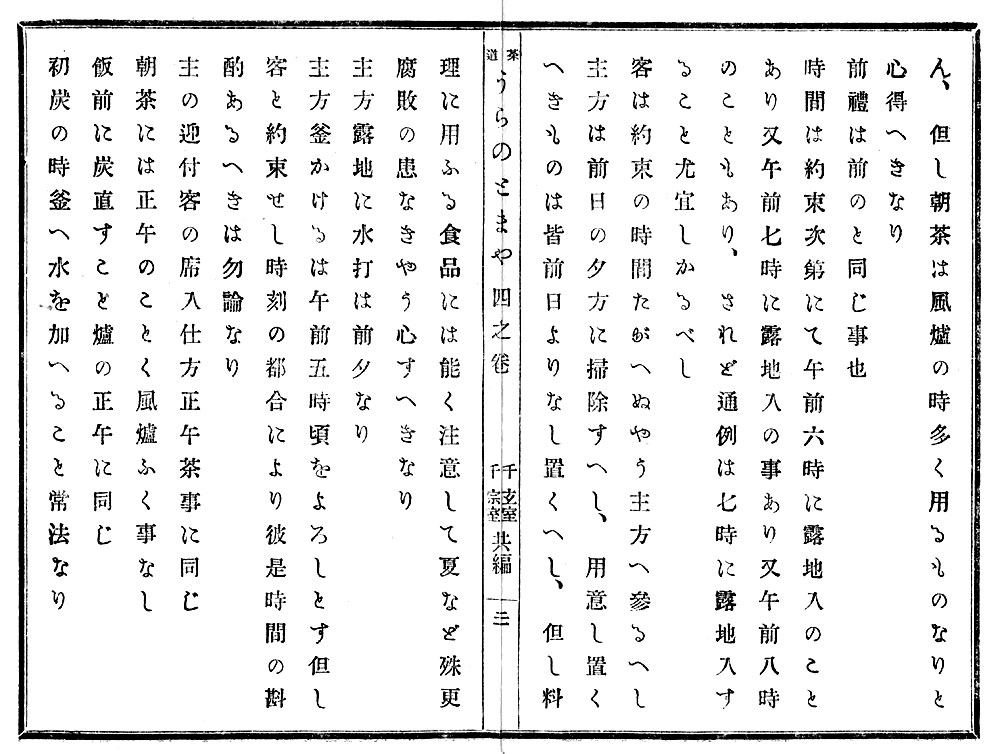 ん、但し朝茶は風爐の時多く用るものなりと
心得へきなり
前禮は前のと同じ事也
時間は約束次第にて午前六時に露地入のこと
あり又午前七時に露地入の事あり又午前八時
のこともあり、されど通例は七時に露地入す
ること尤宜しかるべし
客は約束の時間たがへぬやう主方へ參るへし
主方は前日の夕方に掃除すへし、用意し置く
へきものは皆前日よりなし置くへし、但し料
茶道うらのとまや 四之卷 千玄室 千宗室 共編 三
理に用ふる食品には能く注意して夏など殊更
腐敗の患なきやう心すへきなり
主方露地に水打は前夕なり
主方釜かけるは午前五時頃をよろしとす但し
客と約束せし時刻の都合により彼是時間の斟
酌あるへきは勿論なり
主の迎付客の席入仕方正午茶事に同じ
朝茶には正午のことく風爐ふく事なし
飯前に炭直すこと爐の正午に同じ
初炭の時釜へ水を加へること常法なり